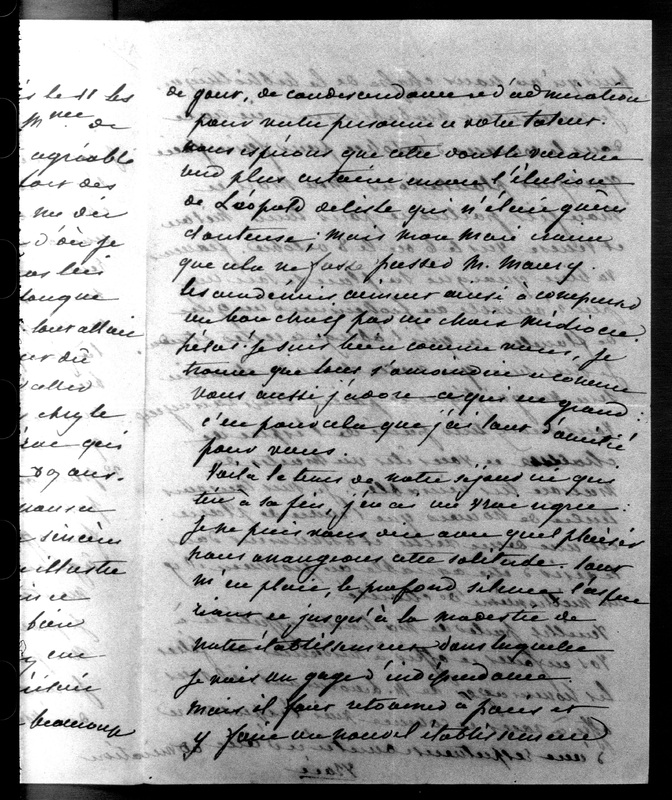 is le 11 les
Mme de
agréable
fort des
me dir
d'où je
pas lées
longue
tout allait
aller
chez le
vrai qui
pour sa
sincère
illustre
bien
beaucoup
de gout, de condescendance et d'admiration
pour votre personne et votre talent.
nous espérons que cette double vacance
rend plus certaine encore l'élection
de Léopold delisle qui n'était guère
douteuse ; mais mon mari craint
que cela ne fasse passer M. Maury.
les académies aiment aussi à compenser
un bon choix par un choix médiocre
hélas! je suis bien comme vous, je
trouve que tout s'amoindrit et comme
vous aussi j'adore ce qui est grand :
c'est pour cela que j'ai tant d'amitié
pour vous.
Voilà le tems de notre séjour ici qui
tire à sa fin, j'en ai un vrai regret :
je ne puis vous dire avec quel plaisir
nous avons cette solitude. tout
m'en plait, le profond silence, l'aspect
riant et jusqu'à la modestie de
notre établissement dans laquelle
je vois un gage d'indépendance.
mais il faut retourner à paris et
y faire un nouvel établissement